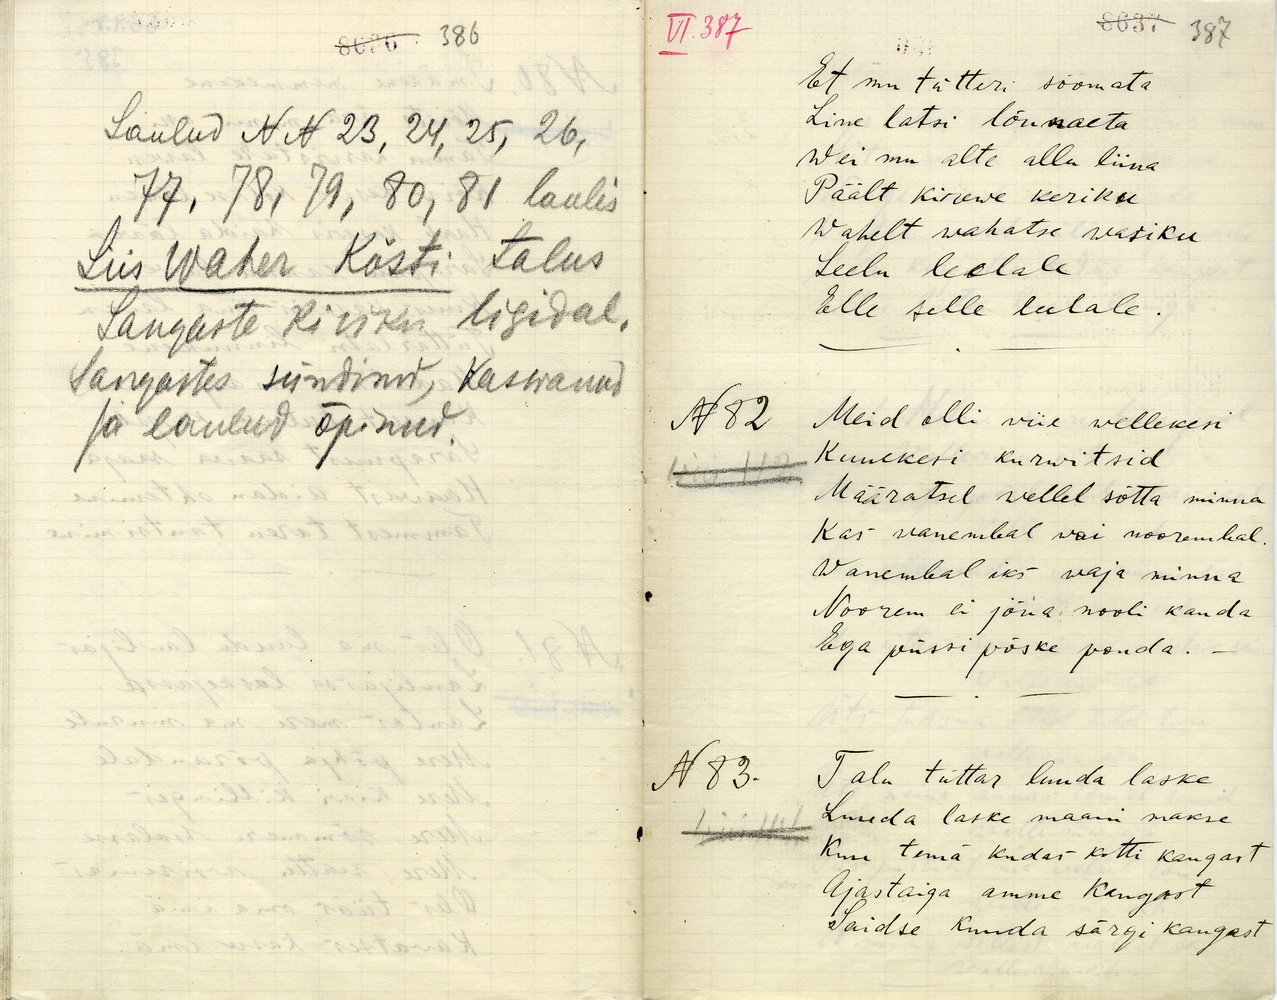 8636 386
Laulud N N 23, 24, 25, 26,
77, 78, 79, 80, 81 laulis
Liis Waher Kösti talus
Sangaste kiriku ligidal.
Sangastes sündinud, Kaswanud
ja laulud õpinud.
VI 387
8637 387
Et mu tütteri söömata
Line latsi lõunaeta
Wei mu alte allu liina
Päält kirwwe keriku
Wahelt wahatse wasiku
Leelu leelale
Elle selle leelale.
N 82
Meid olli viie wellekesi
Kuuekesi kurwitsid
Määratsel vellel sõtta minna
Kas vanembal vai noorembal.
Wanembal iks vaja minna
Noorem ei jõua nooli kanda
Ega püssi põske panda. —
N 83.
Talu tüttar luuda laske
Luuda laske maani makse
Kuu temä kudas kotti kangast
Ajastaiga amme Kangast
Saidse kuuda särgi kangast